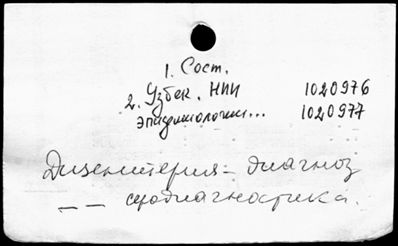 1. Сост.
2. Узбек. НИИ 1020976
эпидемиологии... 1020977
Дизентерия - диагноз
— — серодиагностика.